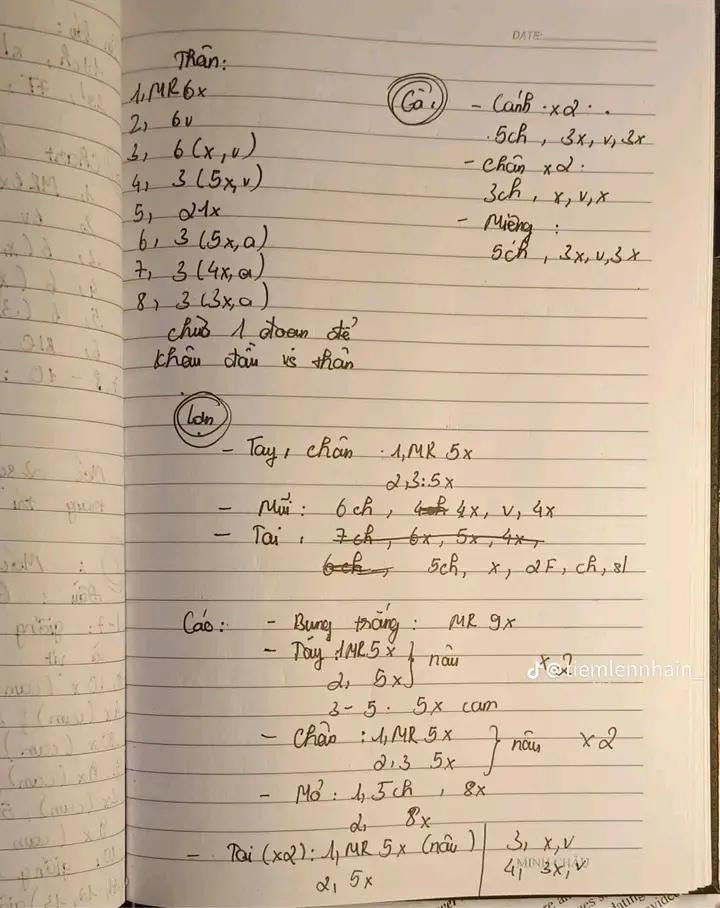 DATE:
Thân:
1, MR 6x
2, 6v
3, 6(x,v)
4, 3(5x,v)
5, 21x
6, 3(5x,a)
7, 3(4x,a)
8, 3(3x,a)
chừa 1 đoạn để
khâu đầu vs thân
Gà:
- Cánh x2:
5ch, 3x, v, 3x
- chân x2:
3ch, x, v, x
- Miệng:
5ch, 3x, v, 3x
Lợn
- Tay, chân. 1, MR 5x
2,3: 5x
- Mũi: 6ch, 4ch 4x, v, 4x
- Tai: 7ch, 6x, 5x, 4x,
6ch, 5ch, x, 2F, ch, sl
Cáo: - Bụng trắng: MR 9x
- Tay: 1 MR 5x } nâu x2
2, 5x
3-5. 5x cam
- Chân: 1, MR 5x } nâu x2
2,3 5x
- Mỏ: 1, 5ch, 8x
2, 8x
- Tai (x2): 1, MR 5x (nâu)
2, 5x
3, x,v
4, 3x,v
MINH CHÂU
@tiemlennhain_